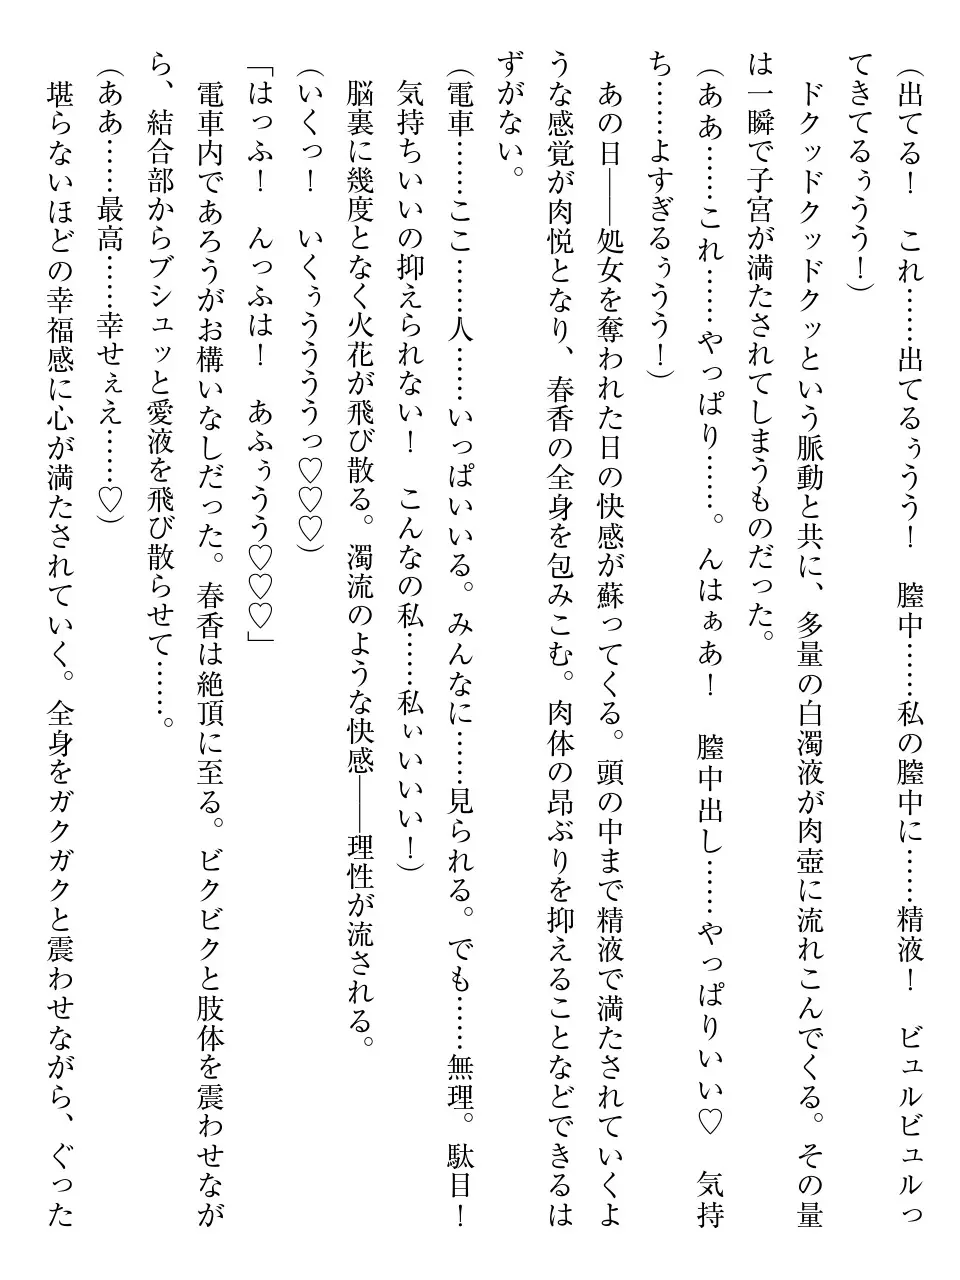 （出てる！　これ……出てるぅうう！　膣中……私の膣中に……精液！　ビュルビュルっ
てきてるぅうう！）
　ドクッドクッドクッという脈動と共に、多量の白濁液が肉壺に流れこんでくる。その量
は一瞬で子宮が満たされてしまうものだった。
（ああ……これ……やっぱり……。んはぁあ！　膣中出し……やっぱりいい♡　気持
ち……よすぎるぅうう！）
　あの日――処女を奪われた日の快感が蘇ってくる。頭の中まで精液で満たされていくよ
うな感覚が肉悦となり、春香の全身を包みこむ。肉体の昂ぶりを抑えることなどできるは
ずがない。
（電車……ここ……人……いっぱいいる。みんなに……見られる。でも……無理。駄目！
　気持ちいいの抑えられない！　こんなの私……私ぃいいい！）
　脳裏に幾度となく火花が飛び散る。濁流のような快感――理性が流される。
（いくっ！　いくぅうううっ♡♡♡）
「はっふ！　んっふは！　あふぅうう♡♡♡」
　電車内であろうがお構いなしだった。春香は絶頂に至る。ビクビクと肢体を震わせなが
ら、結合部からブシュッと愛液を飛び散らせて……。
（ああ……最高……幸せぇえ……♡）
　堪らないほどの幸福感に心が満たされていく。全身をガクガクと震わせながら、ぐった